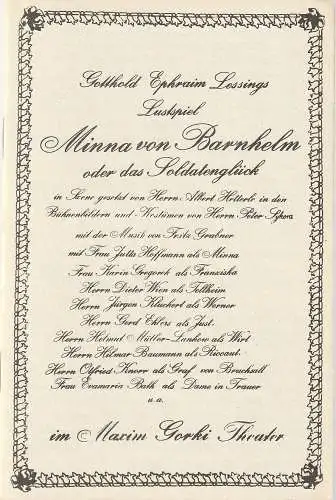 Gotthold Ephraim Lessings
Lustspiel
Minna von Barnhelm
oder das Soldatenglück
in Scene gesetzt von Herrn Albert Hetterle in den
Bühnenbildern und Kostümen von Herrn Peter
mit der Musik von Fritz Grabner
mit Frau Jutta Hoffmann als Minna
Frau Karin Gregorek als Franziska
Herrn Dieter Wien als Tellheim
Herrn Jürgen Kluckert als Werner
Herrn Gerd Ehlers als Just
Herrn Helmut Müller-Lankow als Wirt
Herrn Hilmar Baumann als Riccaut
Herrn Otfried Knorr als Graf von Bruchsall
Frau Evamaria Bath als Dame in Trauer
u.a.
im Maxim Gorki Theater